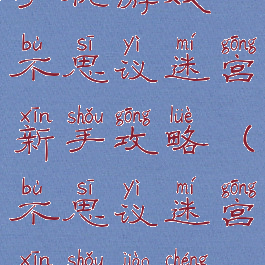 bù sī yì mí gōng
不思议迷宫
xīn shǒu gōng lüè
新手攻略（
bù sī yì mí gōng
不思议迷宫
xīn shǒu jiào chéng